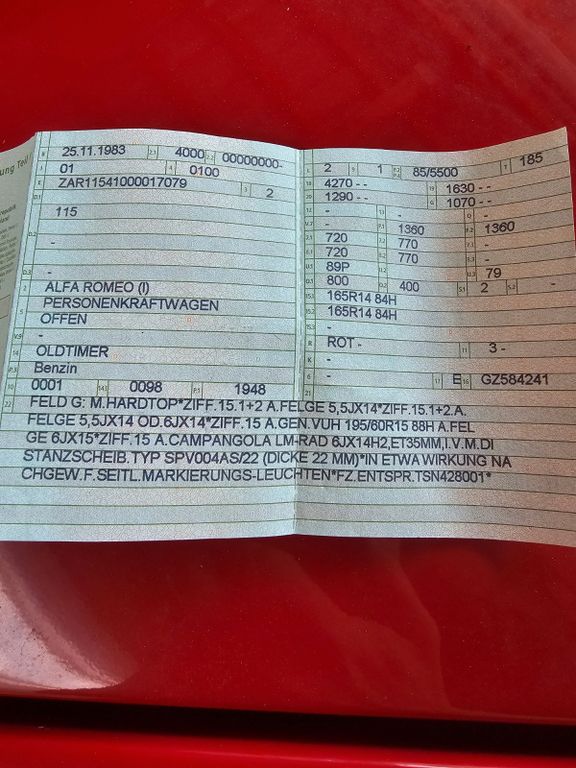 ung Teil
B 25.11.1983 2.1 4000 2.2 00000000-
J 01 4 0100
E ZAR11541000017079 3 2
D.1
115
D.2 -
-
D.3 -
2 ALFA ROMEO (I)
5 PERSONENKRAFTWAGEN
OFFEN
V.9 -
14 OLDTIMER
P.3 Benzin
10 0001 14.1 0098 P.1 1948
L 2 9 1 P.2 P.4 85/5500 T 185
18 4270 - - 19 1630 - -
20 1290 - - G 1070 - -
12 - 13 - Q -
V.7 - F.1 1360 F.2 1360
7.1 720 7.2 770 7.3 -
8.1 720 8.2 770 8.3 -
U.1 89P U.2 - U.3 79
O.1 800 O.2 400 S.1 2 S.2 -
15.1 165R14 84H
15.2 165R14 84H
15.3 -
R ROT - 11 3 -
K -
6 - 17 E 16 GZ584241
22 FELD G: M.HARDTOP*ZIFF.15.1+2 A.FELGE 5,5JX14*ZIFF.15.1+2.A.
FELGE 5,5JX14 OD.6JX14*ZIFF.15 A.GEN.VUH 195/60R15 88H A.FEL
GE 6JX15*ZIFF.15 A.CAMPANGOLA LM-RAD 6JX14H2,ET35MM,I.V.M.DI
STANZSCHEIB.TYP SPV004AS/22 (DICKE 22 MM)*IN ETWAWIRKUNG NA
CHGEW.F.SEITL.MARKIERUNGS-LEUCHTEN*FZ.ENTSPR.TSN428001*